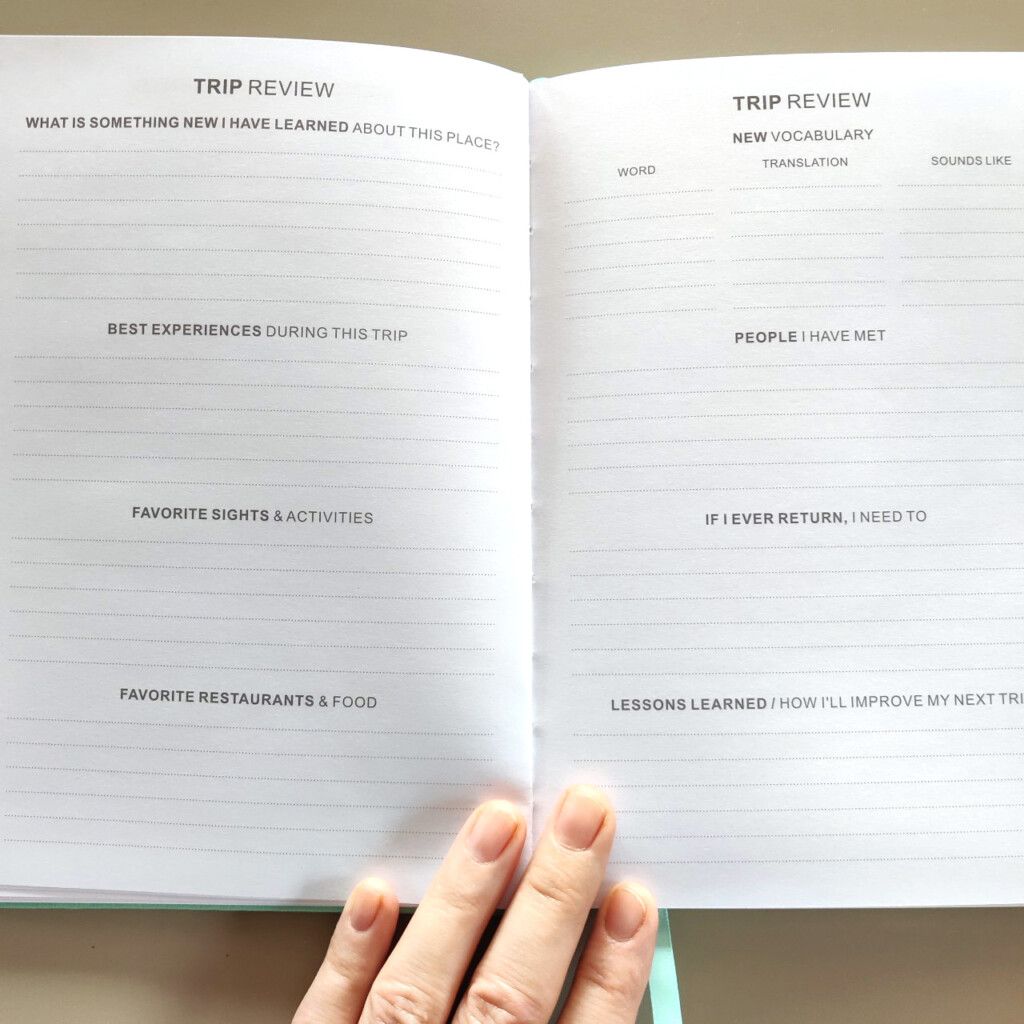 TRIP REVIEW
WHAT IS SOMETHING NEW I HAVE LEARNED ABOUT THIS PLACE?
BEST EXPERIENCES DURING THIS TRIP
FAVORITE SIGHTS & ACTIVITIES
FAVORITE RESTAURANTS & FOOD
TRIP REVIEW
NEW VOCABULARY
WORD TRANSLATION SOUNDS LIKE
PEOPLE I HAVE MET
IF I EVER RETURN, I NEED TO
LESSONS LEARNED / HOW I'LL IMPROVE MY NEXT TRI